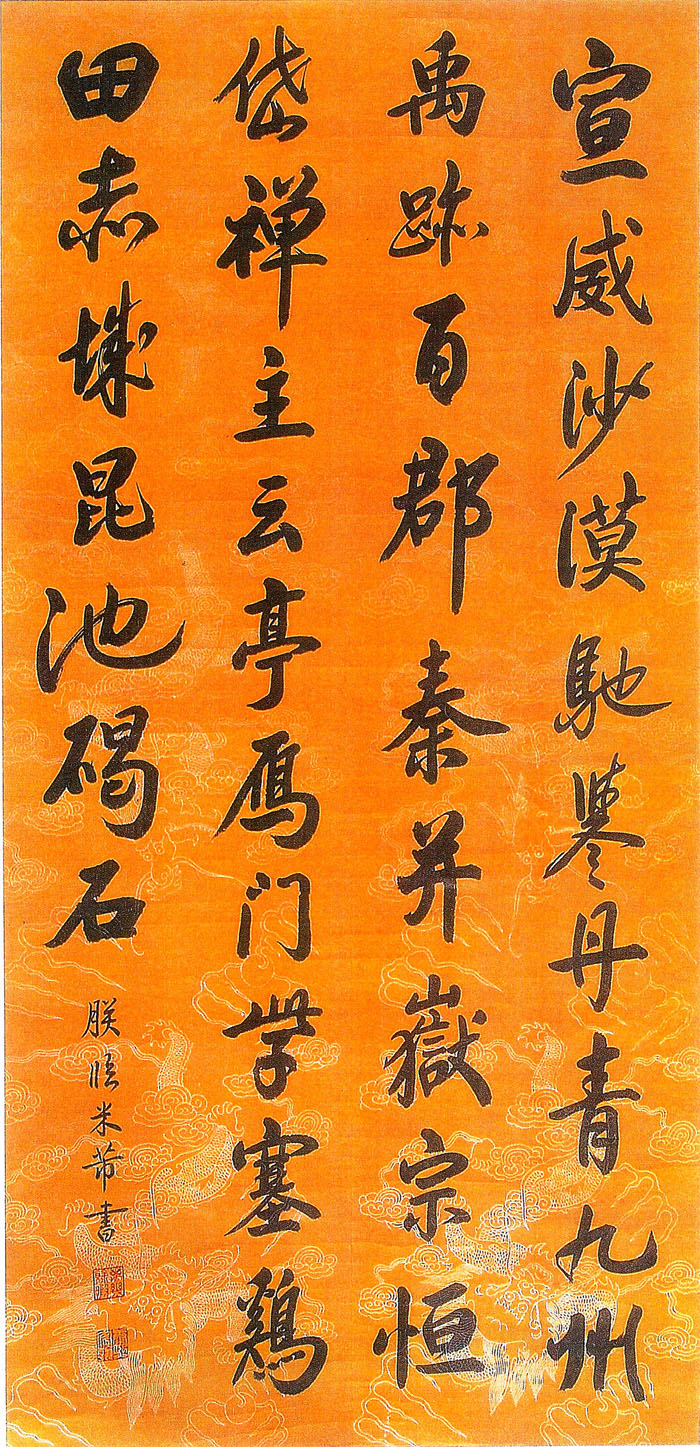 宣威沙漠馳誉丹青九州
禹跡百郡秦并嶽宗恒
岱禅主云亭鴈门紫塞鷄
田赤城昆池碣石
朕臨米芾書